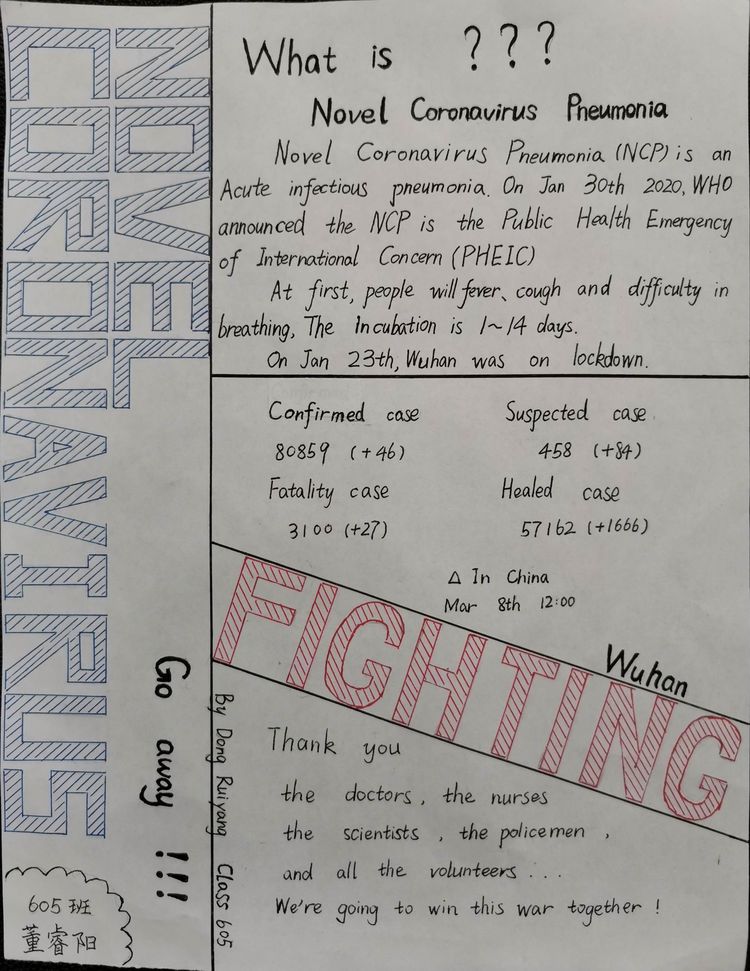 NOVEL
CORONAVIRUS
Go away !!!
605班
董睿阳
What is ???
Novel Coronavirus Pneumonia
Novel Coronavirus Pneumonia (NCP) is an
Acute infectious pneumonia. On Jan 30th 2020, WHO
announced the NCP is the Public Health Emergency
of International Concern (PHEIC)
At first, people will fever、cough and difficulty in
breathing, The Incubation is 1~14 days.
On Jan 23th, Wuhan was on lockdown.
Confirmed case
80859 (+46)
Suspected case
458 (+84)
Fatality case
3100 (+27)
Healed case
57162 (+1666)
△ In China
Mar 8th 12:00
FIGHTING
Wuhan
By Dong Ruiyang Class 605
Thank you
the doctors, the nurses
the scientists, the policemen,
and all the volunteers...
We're going to win this war together!